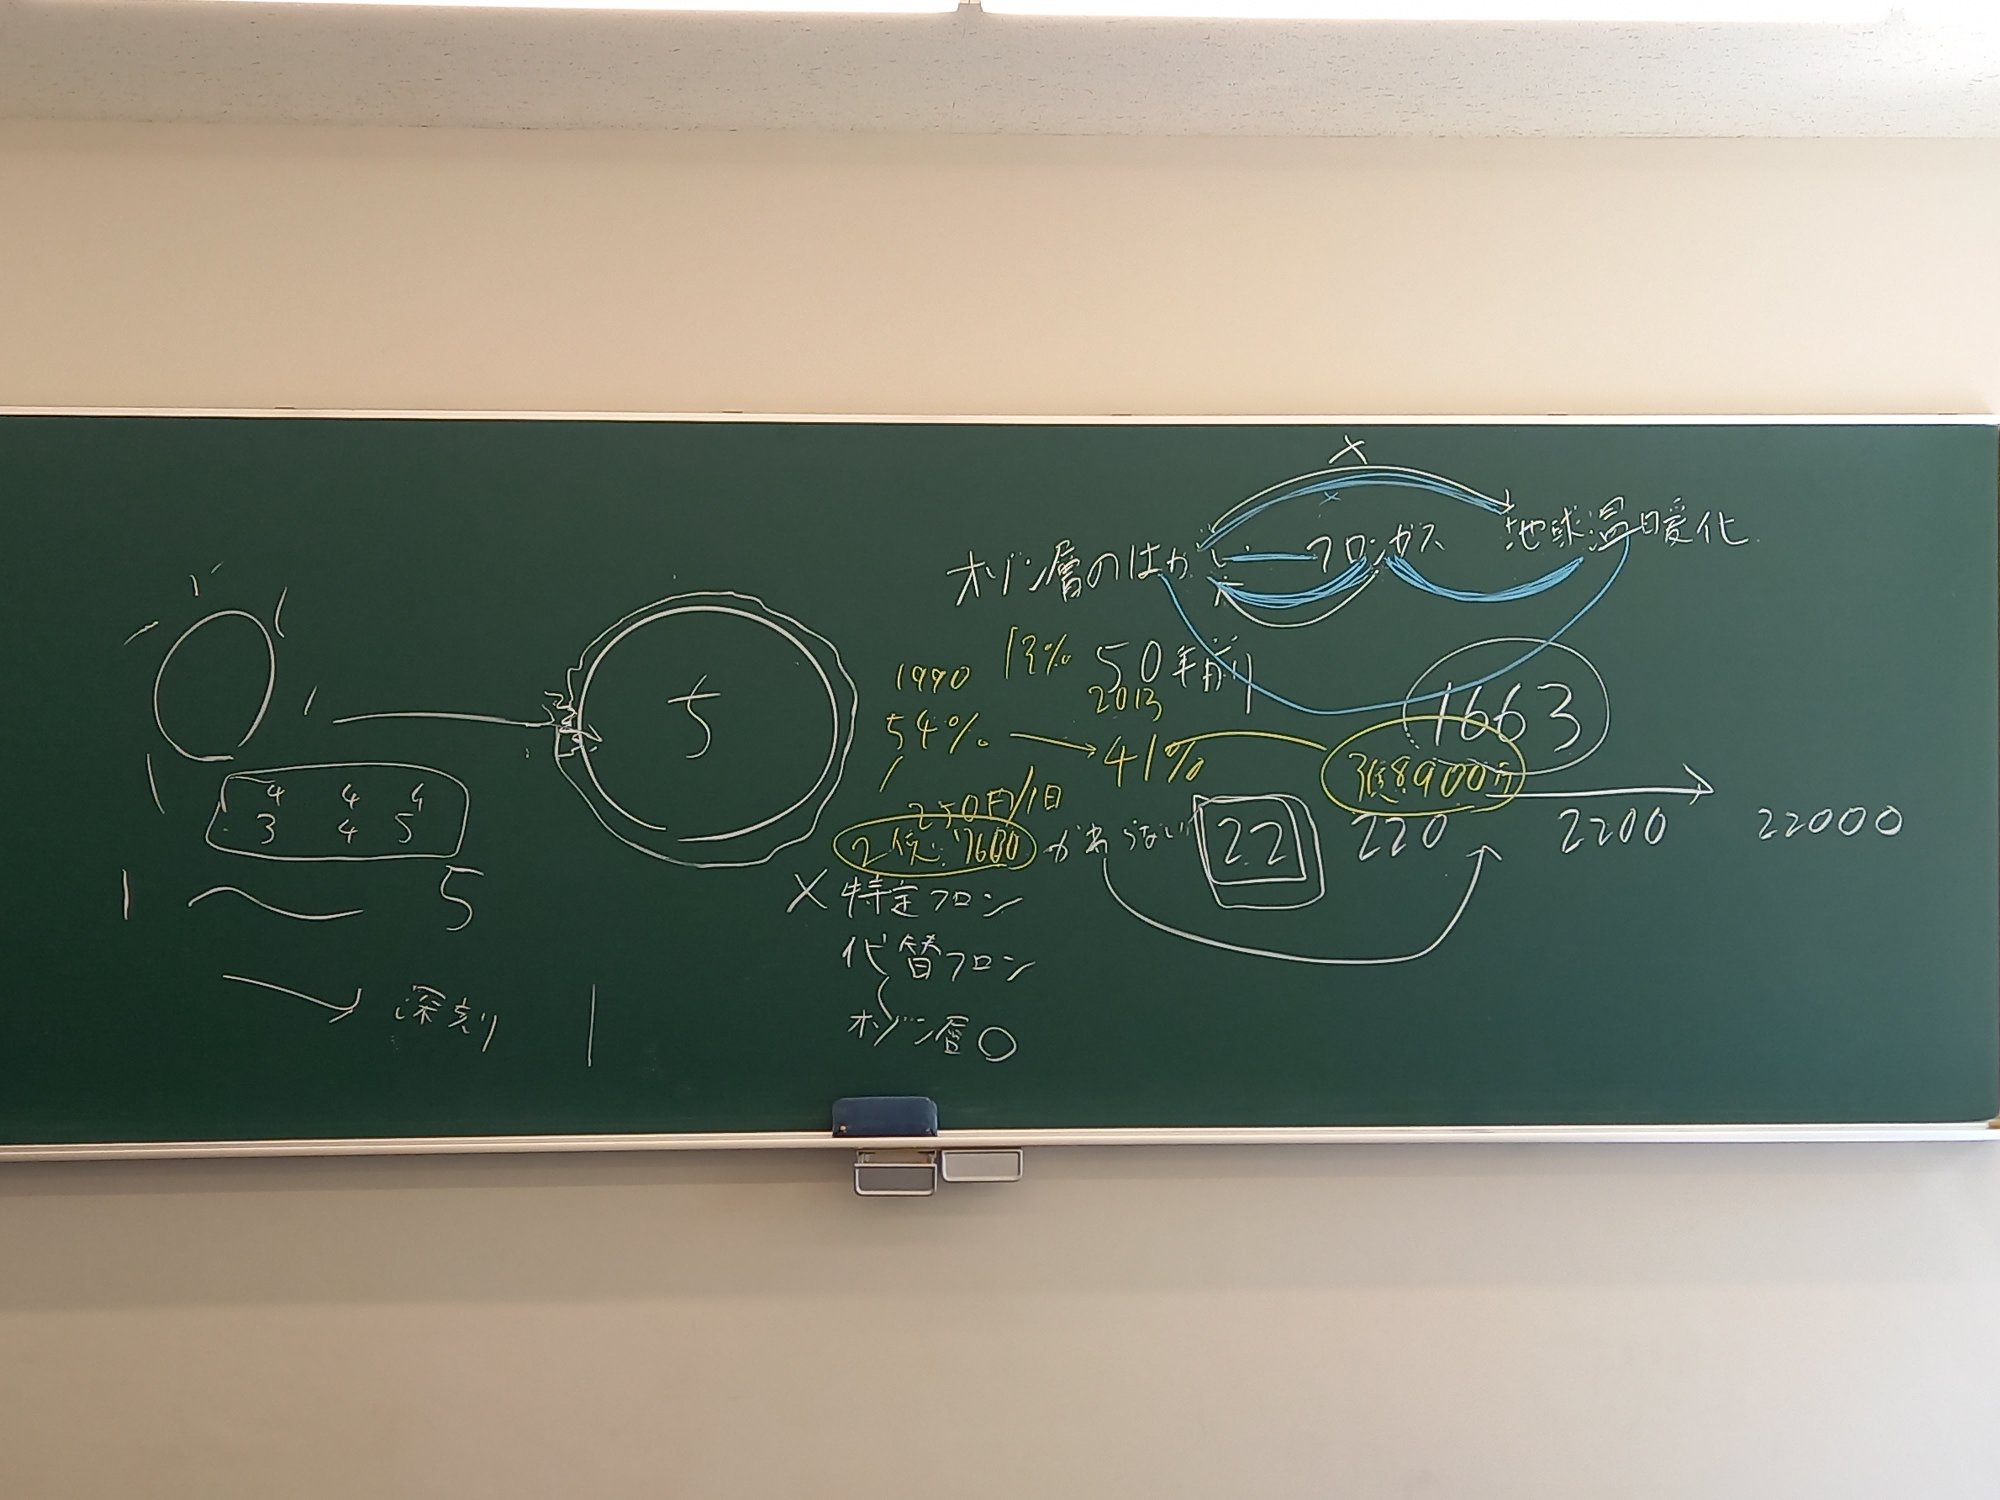 4 4 4
3 4 5
1 〜 5
→ 深刻
5
オゾン層のはか
フロンガス
地球温暖化
×
×
13%
50年前
1990
2013
54% → 41%
250円/1日
2億7600
かわらない
3億8900万
1663
22 220 2200 22000
×特定フロン
代替フロン
オゾン層○